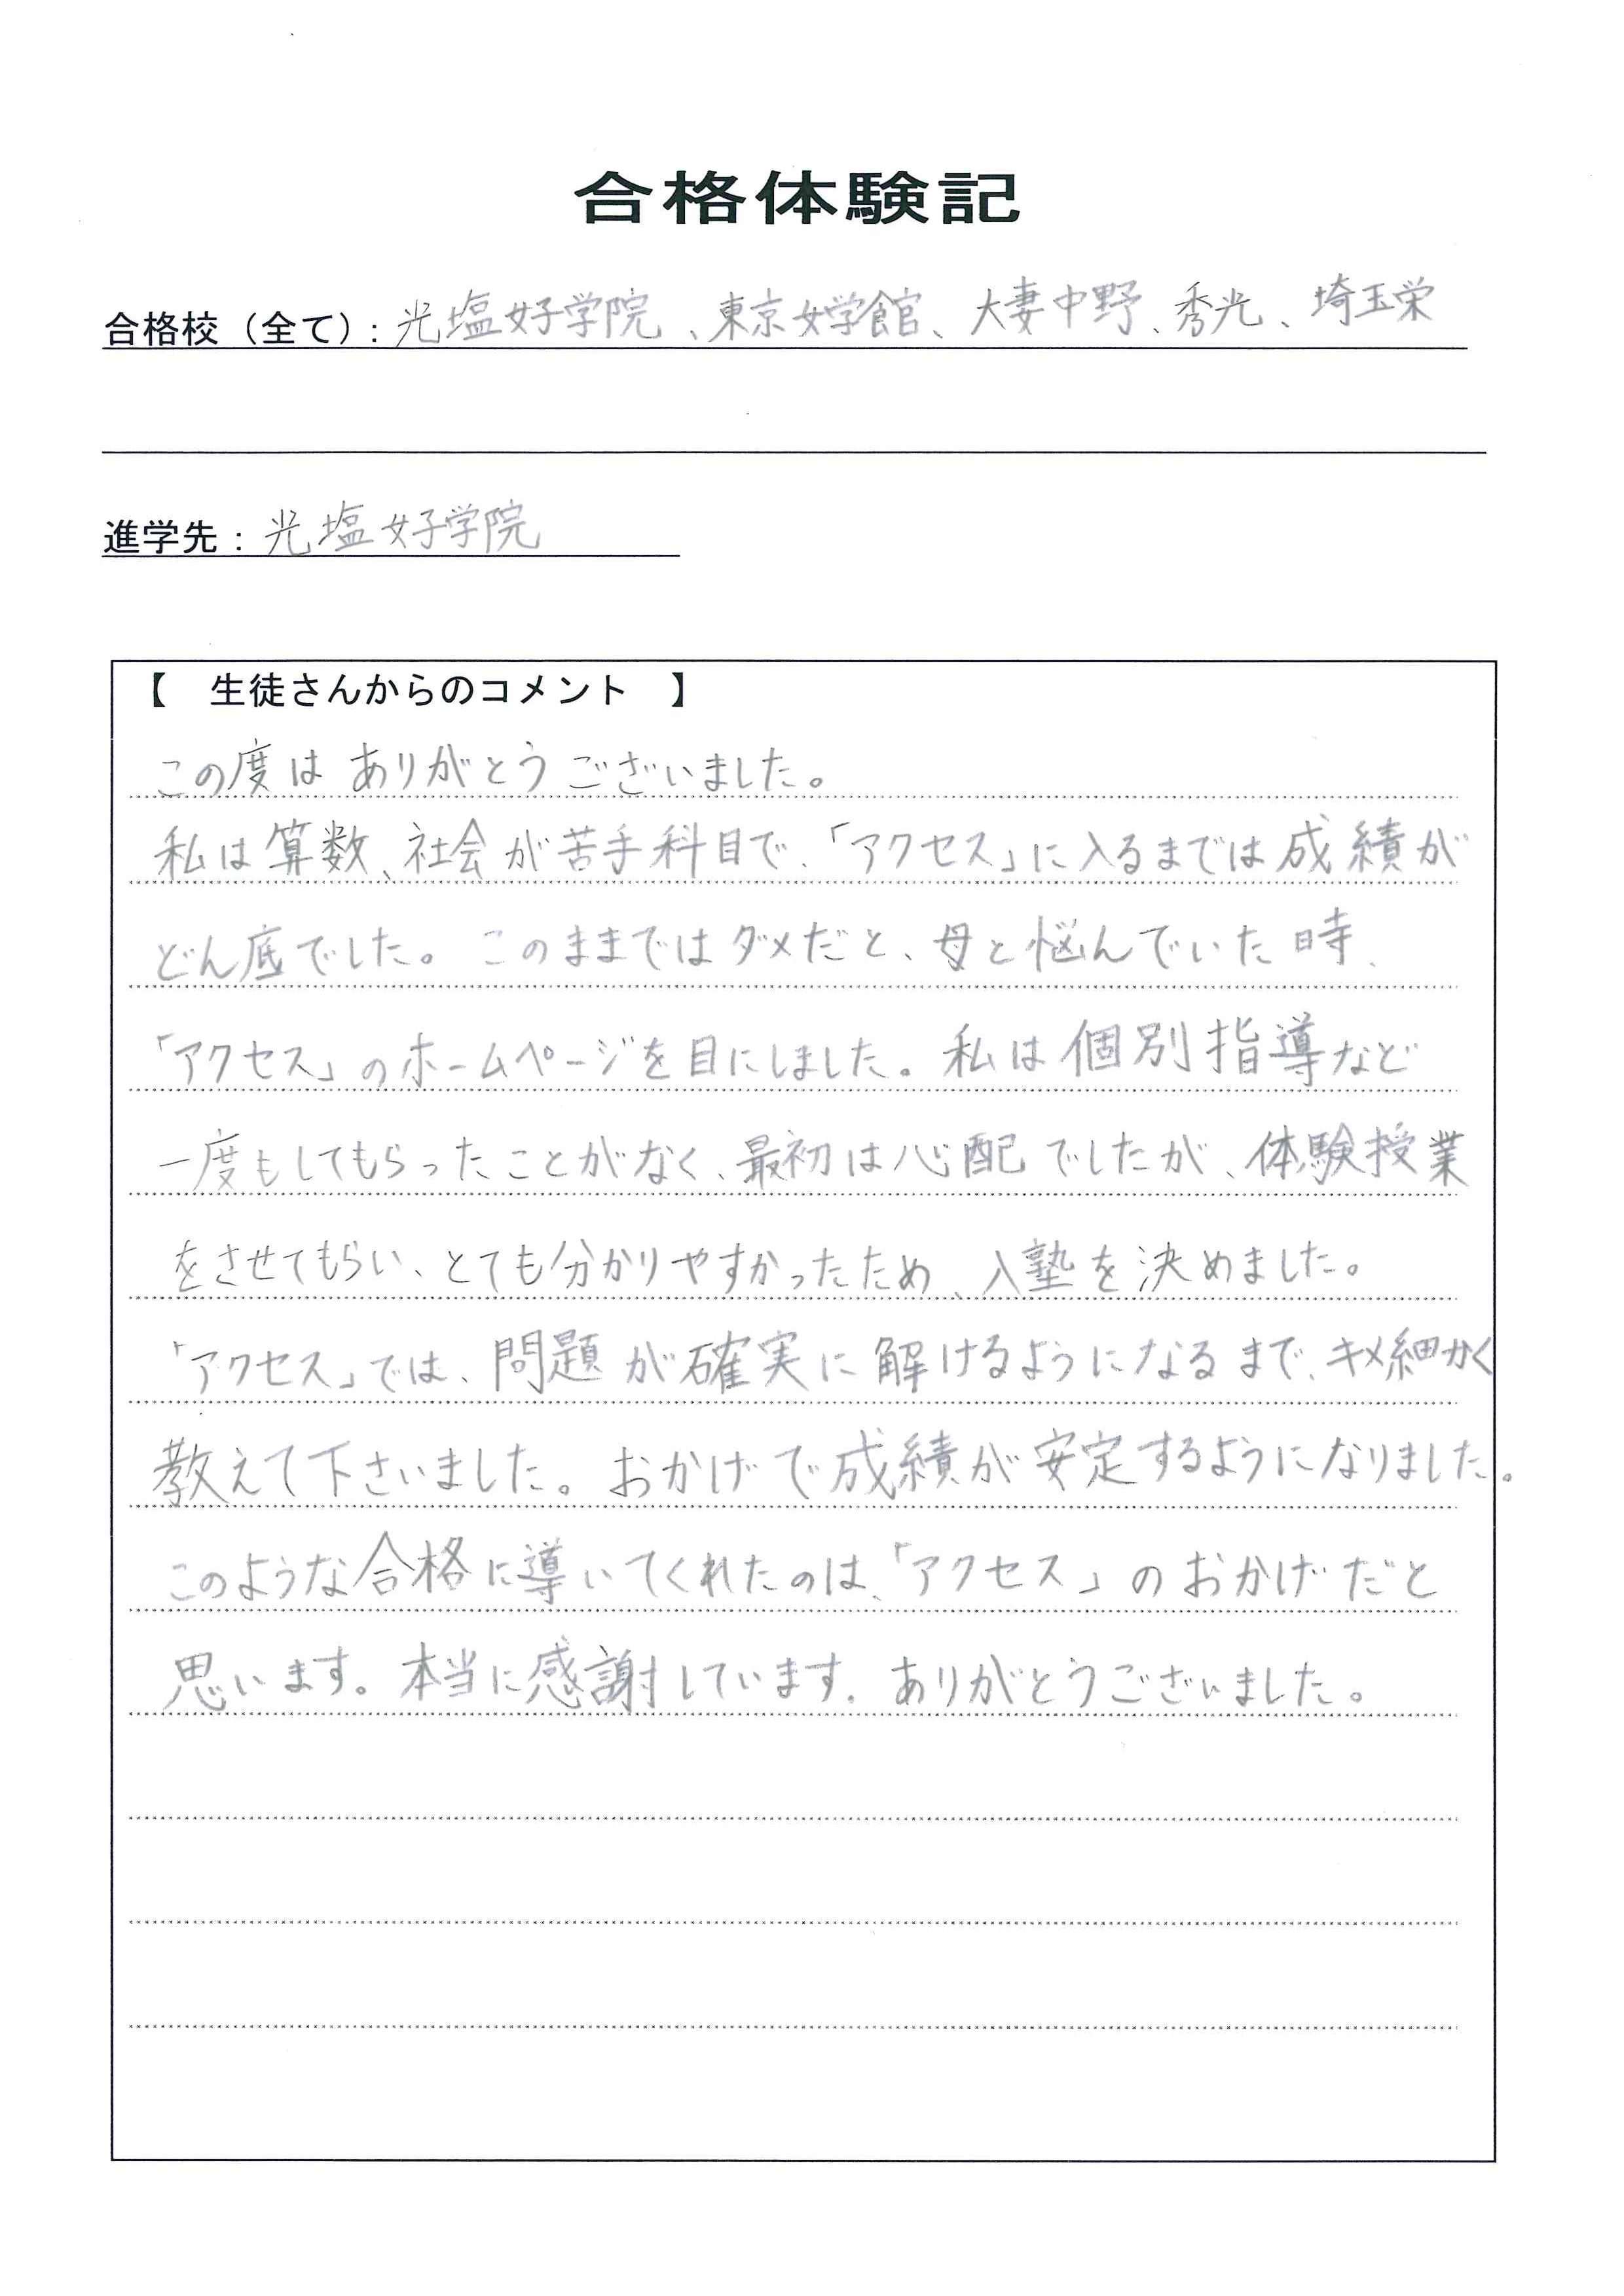 合格体験記
合格校（全て）：光塩女子学院、東京女学館、大妻中野、秀光、埼玉栄
進学先：光塩女子学院
【　生徒さんからのコメント　】
この度は ありがとうございました。
私は算数、社会が苦手科目で、「アクセス」に入るまでは成績が
どん底でした。このままではダメだと、母と悩んでいた時、
「アクセス」のホームページを目にしました。私は個別指導など
一度もしてもらったことがなく、最初は心配でしたが、体験授業
をさせてもらい、とても分かりやすかったため、入塾を決めました。
「アクセス」では、問題が確実に解けるようになるまで、キメ細かく
教えて下さいました。おかげで成績が安定するようになりました。
このような合格に導いてくれたのは、「アクセス」のおかげだと
思います。本当に感謝しています。ありがとうございました。